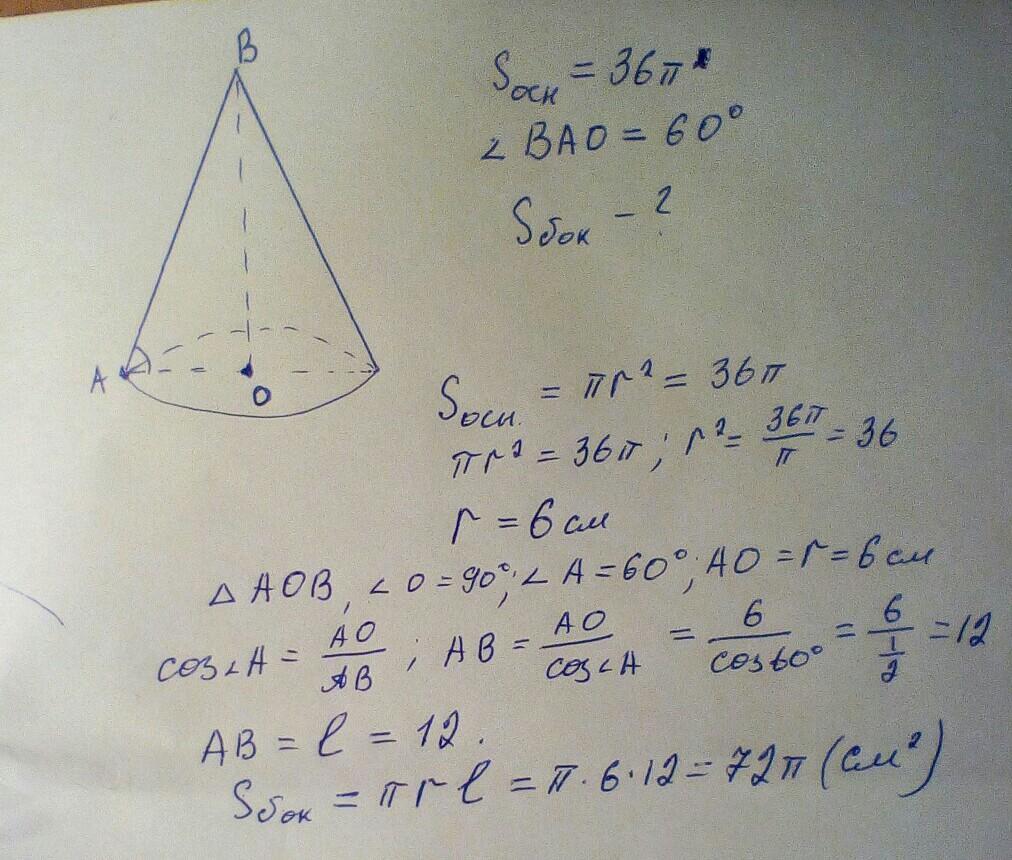 B
A
O
Sосн = 36π
∠ BAO = 60°
Sбок - ?
Sосн. = πr² = 36π
πr² = 36π ; r² = 36π/π = 36
r = 6 см
△ AOB, ∠ O = 90°; ∠ A = 60°; AO = r = 6 см
cos∠A = AO/AB ; AB = AO/cos∠A = 6/cos60° = 6/(1/2) = 12
AB = ℓ = 12.
Sбок = πrℓ = π·6·12 = 72π (см²)